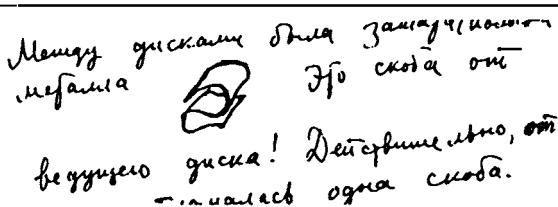 Между дисками была
металла Это скоба от
ведущего диска! Действительно, от
одна скоба.